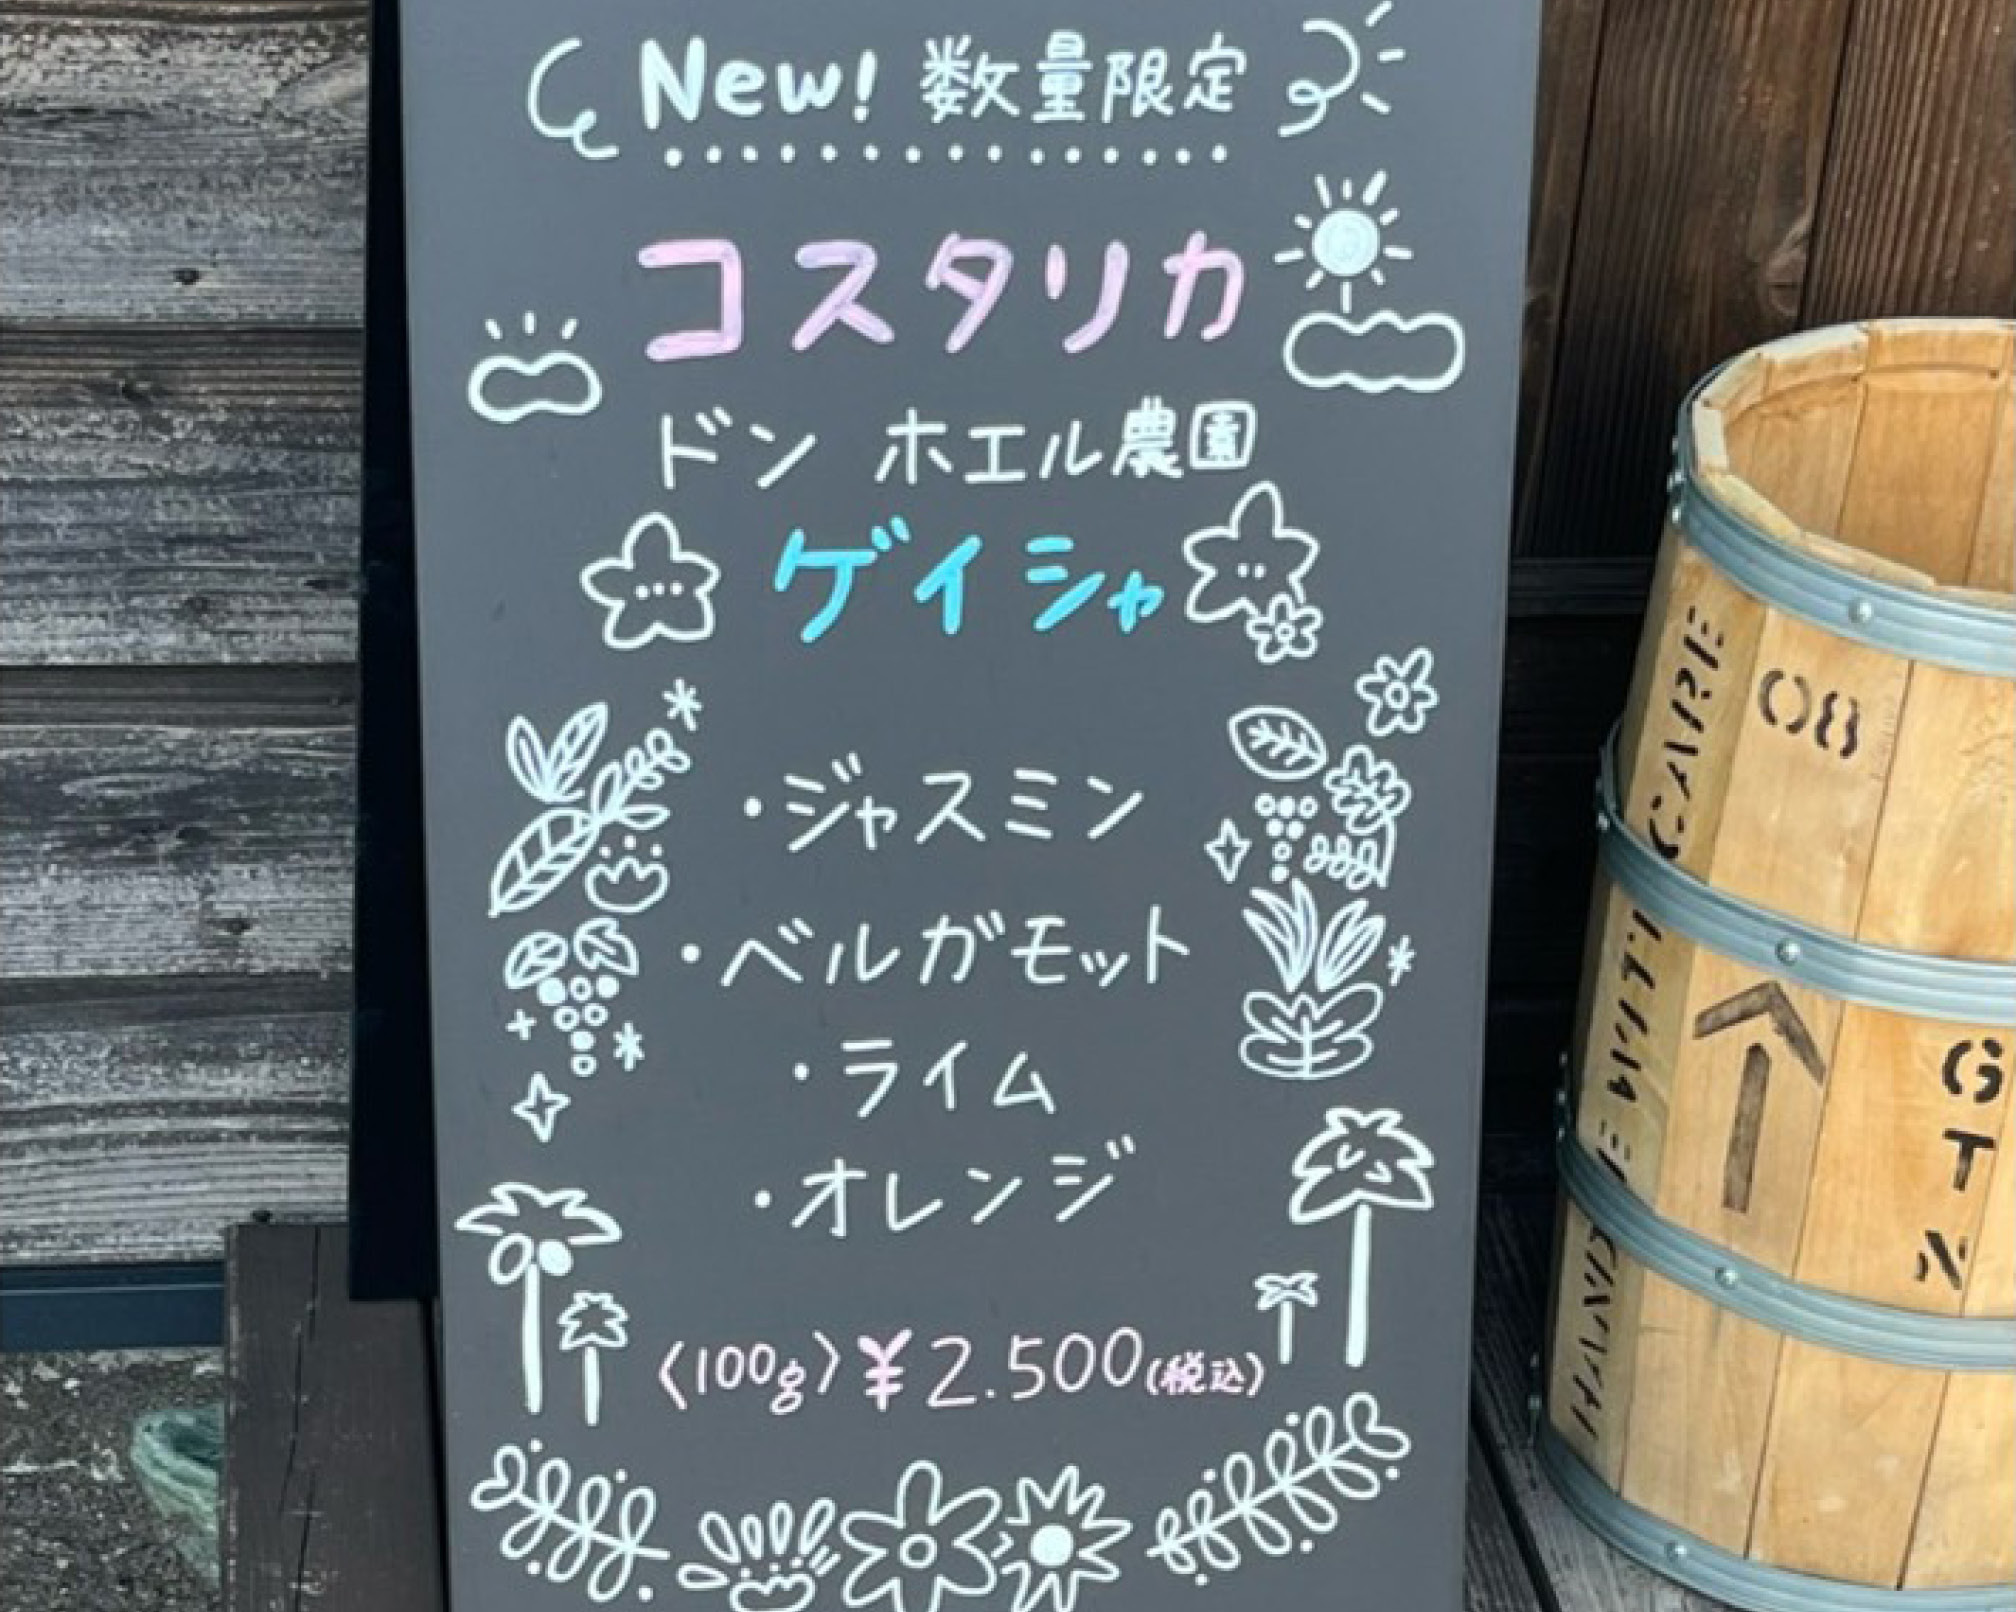 New! 数量限定
コスタリカ
ドン ホエル農園
ゲイシャ
・ジャスミン
・ベルガモット
・ライム
・オレンジ
〈100g〉¥2.500(税込)
08
G
T
N